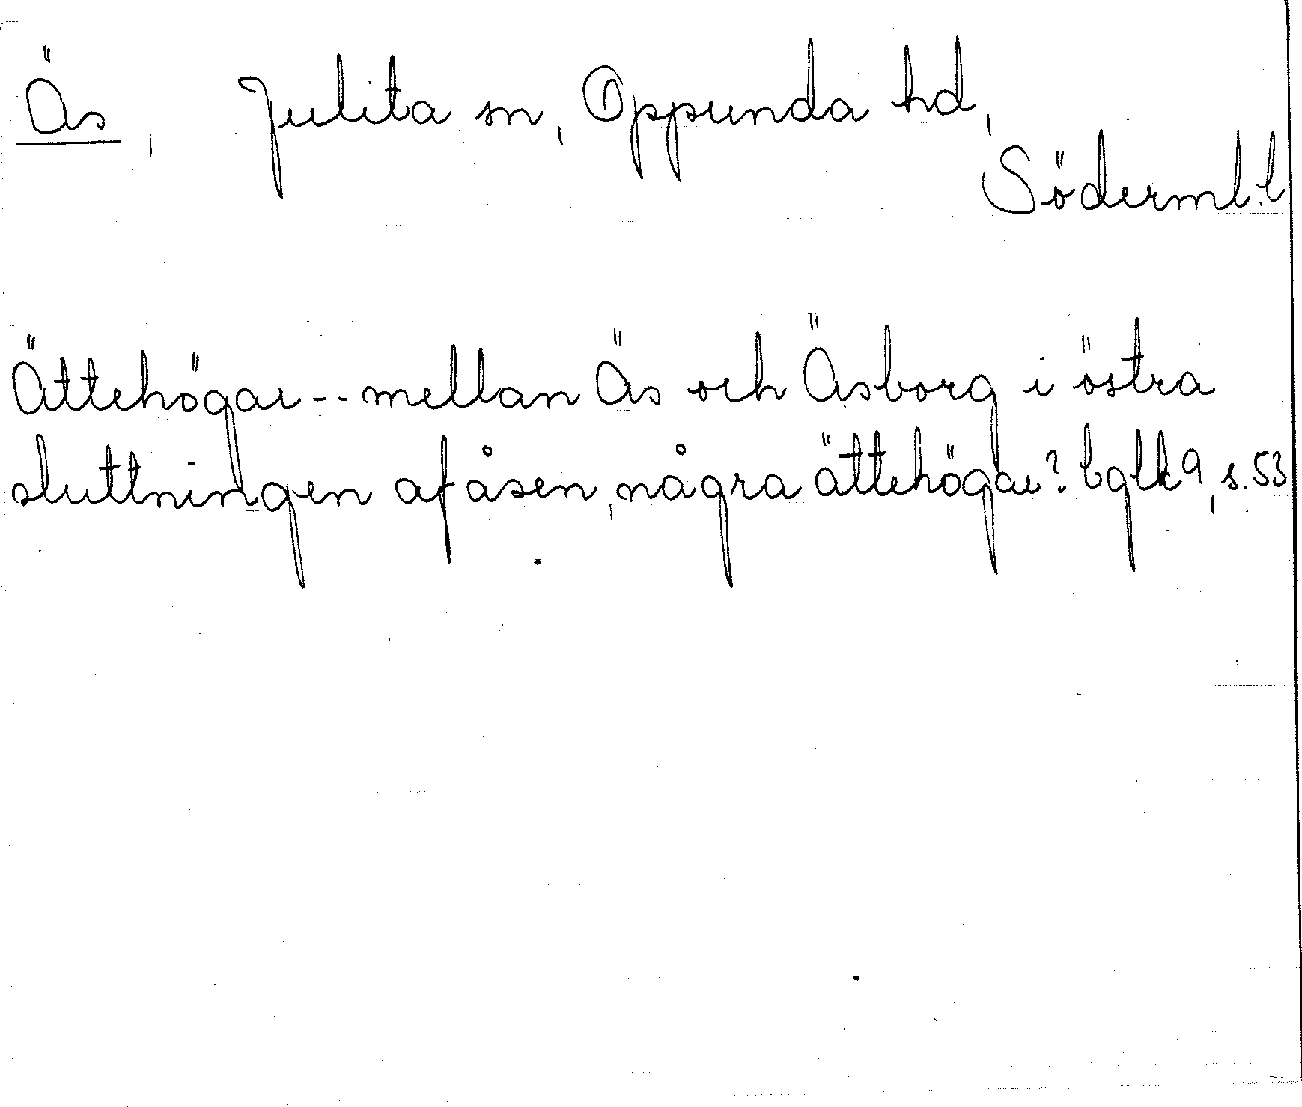 Äs, Julita sn, Oppunda hd,
Söderml. l
Ättehögar -- mellan Äs och Äsborg i östra
sluttningen af åsen, några ättehögar? bglk 9, s. 53